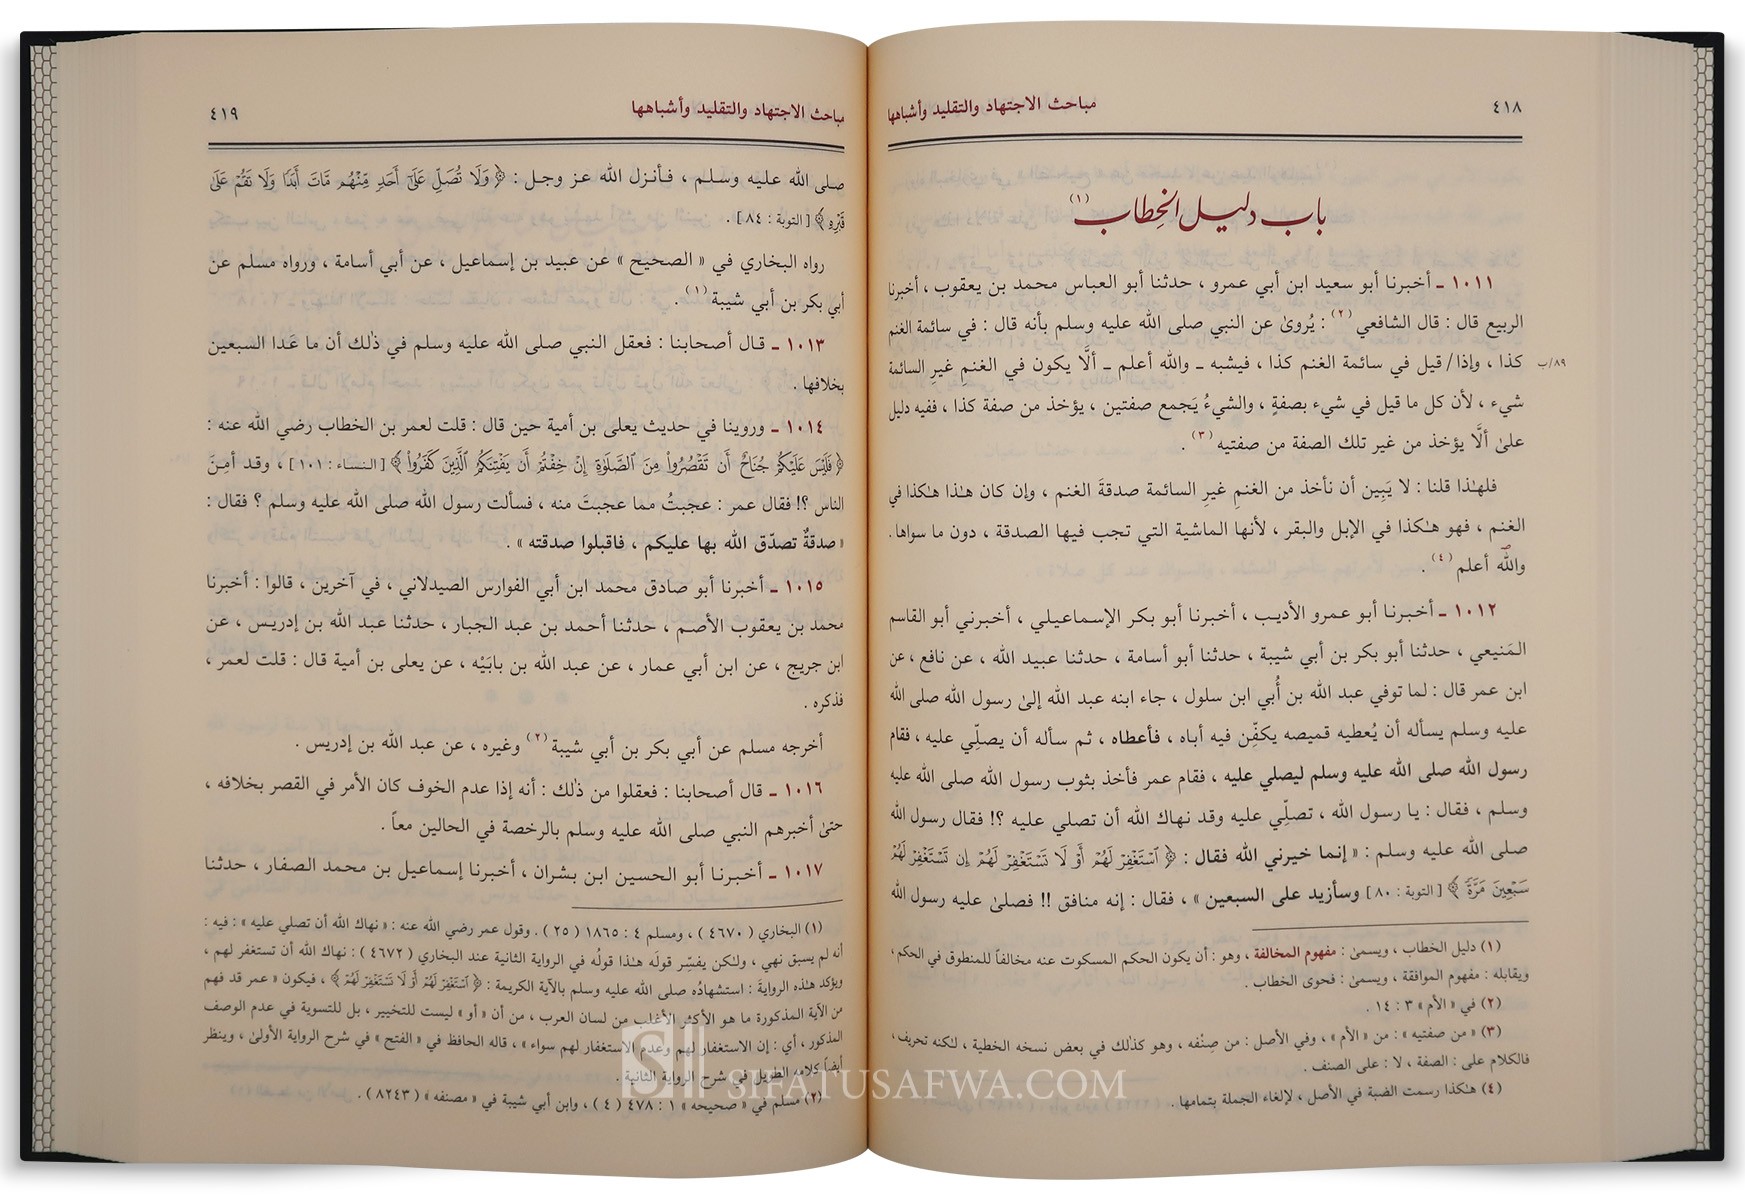 ٤١٨
مباحث الاجتهاد والتقليد وأشباهها
باب دليل الخطاب (١)
١٠١١ ـ أخبرنا أبو سعيد ابن أبي عمرو ، حدثنا أبو العباس محمد بن يعقوب ، أخبرنا
الربيع قال : قال الشافعي (٢) : يُروىٰ عن النبي صلى الله عليه وسلم بأنه قال : في سائمة الغنم
كذا ، وإذا/ قيل في سائمة الغنم كذا ، فيشبه ـ والله أعلم ـ ألَّا يكون في الغنمِ غيرِ السائمة
٨٩/ب
شيء ، لأن كل ما قيل في شيء بصفةٍ ، والشيءُ يَجمع صفتين ، يؤخذ من صفة كذا ، ففيه دليل
علىٰ ألَّا يؤخذ من غير تلك الصفة من صفتيه (٣) .
فلهـٰذا قلنا : لا يَبِين أن نأخذ من الغنمِ غيرِ السائمة صدقةَ الغنم ، وإن كان هـٰذا هـٰكذا في
الغنم ، فهو هـٰكذا في الإبل والبقر ، لأنها الماشية التي تجب فيها الصدقة ، دون ما سواها .
والله أعلم (٤) .
١٠١٢ ـ أخبرنا أبو عمرو الأديب ، أخبرنا أبو بكر الإسماعيلي ، أخبرني أبو القاسم
المَنيعي ، حدثنا أبو بكر بن أبي شيبة ، حدثنا أبو أسامة ، حدثنا عبيد الله ، عن نافع ، عن
ابن عمر قال : لما توفي عبد الله بن أُبي ابن سلول ، جاء ابنه عبد الله إلىٰ رسول الله صلى الله
عليه وسلم يسأله أن يُعطيه قميصه يكفِّن فيه أباه ، فأعطاه ، ثم سأله أن يصلِّي عليه ، فقام
رسول الله صلى الله عليه وسلم ليصلي عليه ، فقام عمر فأخذ بثوب رسول الله صلى الله عليه
وسلم ، فقال : يا رسول الله ، تصلِّي عليه وقد نهاك الله أن تصلي عليه ؟! فقال رسول الله
صلى الله عليه وسلم : « إنما خيرني الله فقال : ﴿ ٱسْتَغْفِرْ لَهُمْ أَوْ لَا تَسْتَغْفِرْ لَهُمْ إِن تَسْتَغْفِرْ لَهُمْ
سَبْعِينَ مَرَّةً ﴾ [التوبة : ٨٠] وسأزيد على السبعين » ، فقال : إنه منافق !! فصلىٰ عليه رسول الله
(١) دليل الخطاب ، ويسمىٰ : مفهوم المخالفة ، وهو : أن يكون الحكم المسكوت عنه مخالفاً للمنطوق في الحكم ،
ويقابله : مفهوم الموافقة ، ويسمىٰ : فحوى الخطاب .
(٢) في « الأم » ٣ : ١٤ .
(٣) « من صفتيه » : من « الأم » ، وفي الأصل : من صِنْفه ، وهو كذٰلك في بعض نسخه الخطية ، لـٰكنه تحريف ،
فالكلام على : الصفة ، لا : على الصنف .
(٤) هـٰكذا رسمت الضبة في الأصل ، لإلغاء الجملة بتمامها .
مباحث الاجتهاد والتقليد وأشباهها
٤١٩
صلى الله عليه وسلم ، فأنزل الله عز وجل : ﴿ وَلَا تُصَلِّ عَلَىٰٓ أَحَدٍ مِّنْهُم مَّاتَ أَبَدًا وَلَا تَقُمْ عَلَىٰ
قَبْرِهِ ﴾ [التوبة : ٨٤] .
رواه البخاري في « الصحيح » عن عبيد بن إسماعيل ، عن أبي أسامة ، ورواه مسلم عن
أبي بكر بن أبي شيبة (١) .
١٠١٣ ـ قال أصحابنا : فعقل النبي صلى الله عليه وسلم في ذٰلك أن ما عَدا السبعين
بخلافها .
١٠١٤ ـ وروينا في حديث يعلى بن أمية حين قال : قلت لعمر بن الخطاب رضي الله عنه :
﴿ فَلَيْسَ عَلَيْكُمْ جُنَاحٌ أَن تَقْصُرُوا۟ مِنَ ٱلصَّلَوٰةِ إِنْ خِفْتُمْ أَن يَفْتِنَكُمُ ٱلَّذِينَ كَفَرُوٓا۟ ﴾ [النساء : ١٠١] ، وقد أمِنَ
الناس ؟! فقال عمر : عجبتُ مما عجبتَ منه ، فسألت رسول الله صلى الله عليه وسلم ؟ فقال :
« صدقةٌ تصدّق الله بها عليكم ، فاقبلوا صدقته » .
١٠١٥ ـ أخبرنا أبو صادق محمد ابن أبي الفوارس الصيدلاني ، في آخرين ، قالوا : أخبرنا
محمد بن يعقوب الأصم ، حدثنا أحمد بن عبد الجبار ، حدثنا عبد الله بن إدريس ، عن
ابن جريج ، عن ابن أبي عمار ، عن عبد الله بن بابَيْه ، عن يعلى بن أمية قال : قلت لعمر ،
فذكره .
أخرجه مسلم عن أبي بكر بن أبي شيبة (٢) وغيره ، عن عبد الله بن إدريس .
١٠١٦ ـ قال أصحابنا : فعقلوا من ذٰلك : أنه إذا عدم الخوف كان الأمر في القصر بخلافه ،
حتىٰ أخبرهم النبي صلى الله عليه وسلم بالرخصة في الحالين معاً .
١٠١٧ ـ أخبرنا أبو الحسين ابن بشران ، أخبرنا إسماعيل بن محمد الصفار ، حدثنا
(١) البخاري ( ٤٦٧٠ ) ، ومسلم ٤ : ١٨٦٥ ( ٢٥ ) . وقول عمر رضي الله عنه : « نهاك الله أن تصلي عليه » : فيه :
أنه لم يسبق نهي ، ولـٰكن يفسِّر قولَه هـٰذا قولُه في الرواية الثانية عند البخاري ( ٤٦٧٢ ) : نهاك الله أن تستغفر لهم ،
ويؤكد هـٰذه الروايةَ : استشهادُه صلى الله عليه وسلم بالآية الكريمة : ﴿ ٱسْتَغْفِرْ لَهُمْ أَوْ لَا تَسْتَغْفِرْ لَهُمْ ﴾ ، فيكون « عمر قد فهم
من الآية المذكورة ما هو الأكثر الأغلب من لسان العرب ، من أن « أو » ليست للتخيير ، بل للتسوية في عدم الوصف
المذكور ، أي : إن الاستغفار لهم وعدم الاستغفار لهم سواء » ، قاله الحافظ في « الفتح » في شرح الرواية الأولىٰ ، وينظر
أيضاً كلامه الطويل في شرح الرواية الثانية .
(٢) مسلم في « صحيحه » ١ : ٤٧٨ ( ٤ ) ، وابن أبي شيبة في « مصنفه » ( ٨٢٤٣ ) .
SIFATUSAFWA.COM